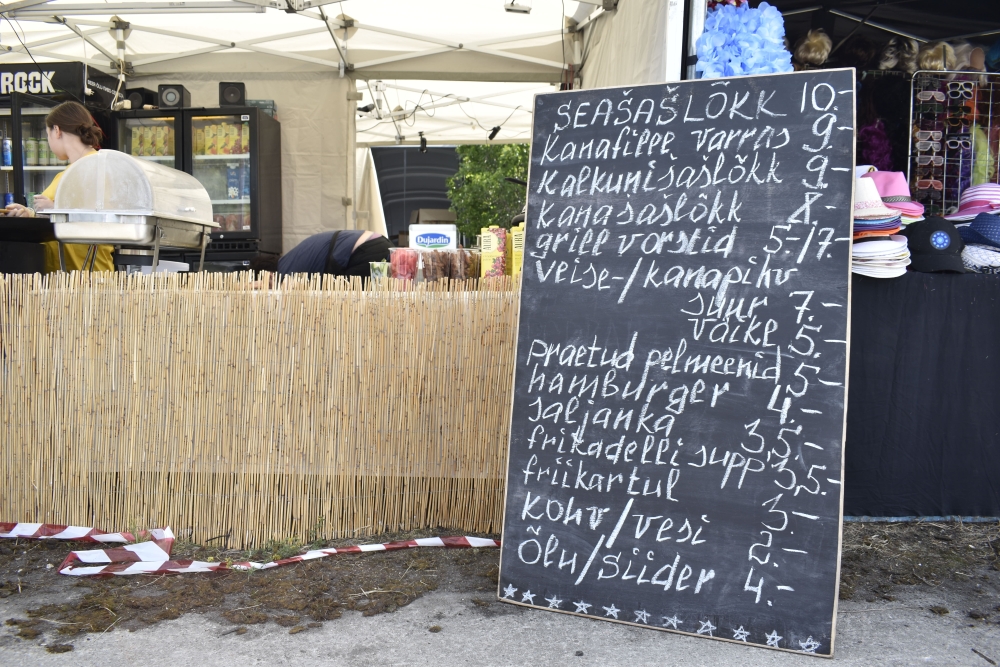 ROCK
Dujardin
SEAŠAŠLÕKK 10.-
kanafilee varras 9.-
kalkunišašlõkk 9.-
kanašašlõkk 8.-
grill vorstid 5.-/7.-
veise-/kanapihv
suur 7.-
väike 5.-
praetud pelmeenid 5.-
hamburger 4.-
seljanka 3,5.-
frikadelli supp 3,5.-
friikartul 3.-
kohv/vesi 2.-
Õlu/siider 4.-